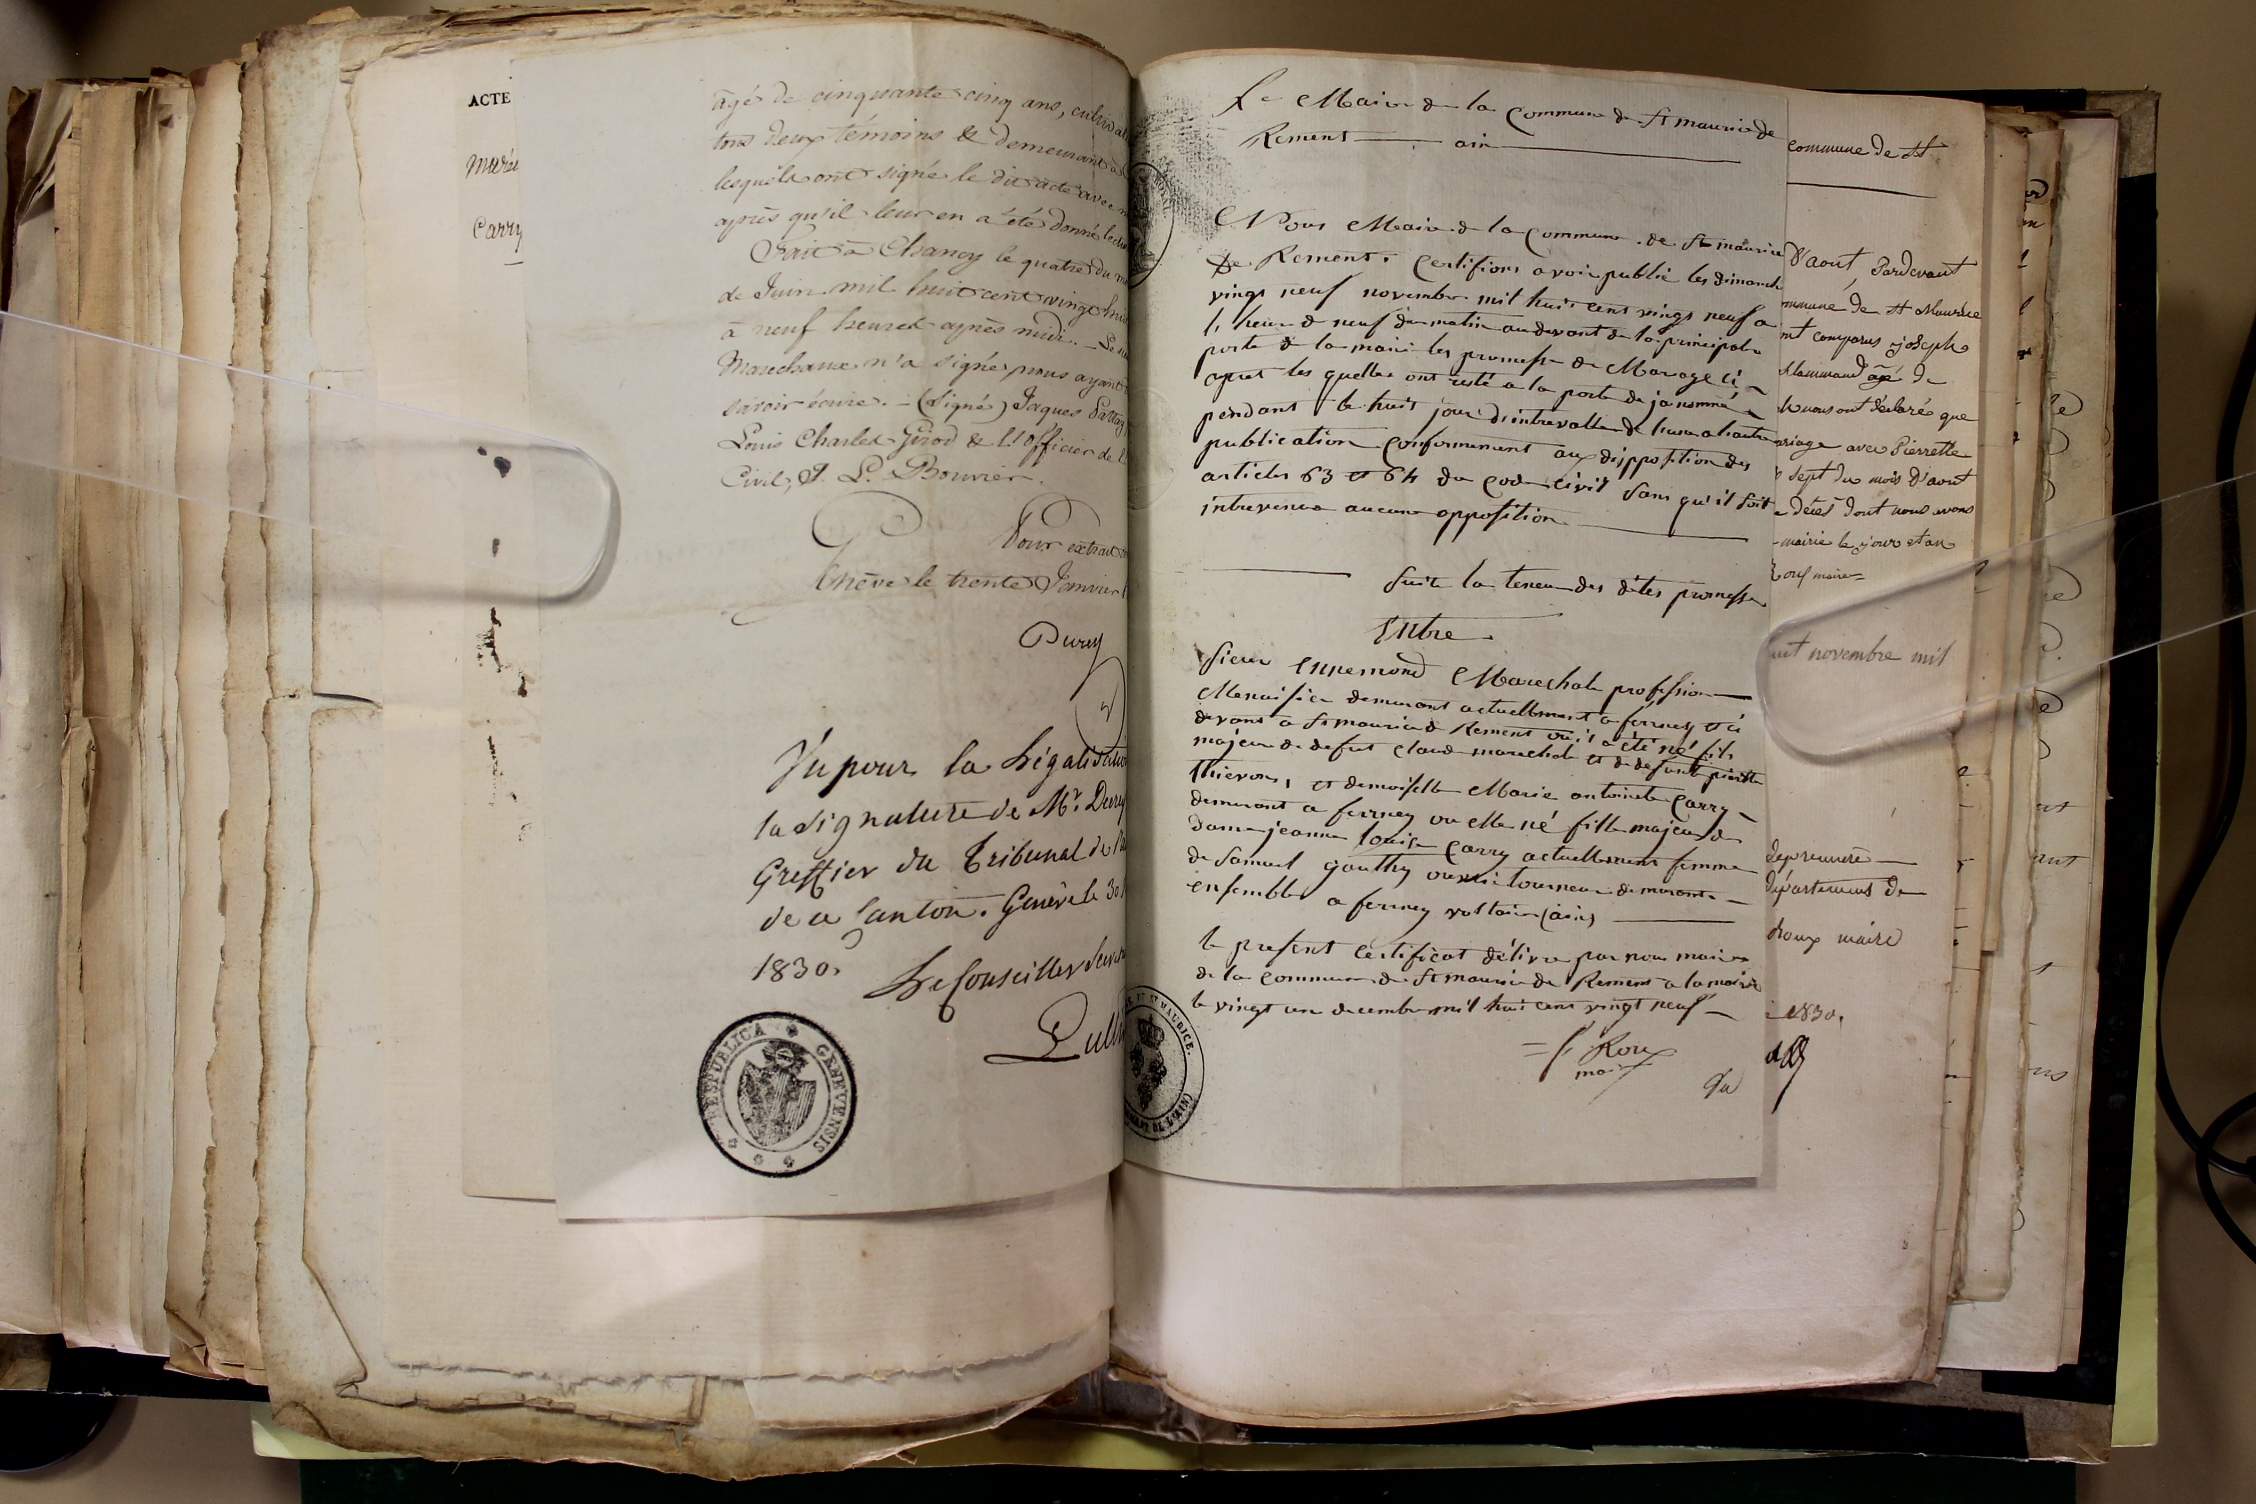 ACTE
Marie
Carry
âgé de cinquante cinq ans, cultivat
tous deux témoins & demeurant à
lesquels ont signé le dit acte avec n
après qu'il leur en a été donné lectu
Fait à Chancy le quatre du m
de Juin mil huit cent vingt huit
à neuf heures après midi. _ Le
Marechaux n'a signé pour ayant
savoir écrire. _ (Signé) Jaques
Louis Charles Girod & l'officier de l
Civil, J. L. Bouvier.
Pour extrait
Genève le trente Janvier
Durey
Vu pour la Légalisatio
la signature de Mr. Durey
Greffier du Tribunal de
de ce Canton. Genève le 30
1830.
Le Conseiller Secr
RESPUBLICA GENEVENSIS
Le Maire de la Commune de St maurice de
Remens ain
Nous Maire de la Commune de St maurice
de Remens. Certifions avoir publié les dimanch
vingt neuf novembre mil huit cent vingt neuf a
l'heure de neuf du matin au devant de la principale
porte de la mairie les promesse de Mariage ci
apret les quelles ont resté a la porte de ja nommé
pendant le huit jour d'intrevalle de l'une a l'autre
publication conformement aux dispposition des
articles 63 et 64 du code civil sans qu'il soit
intrevenue aucune opposition
suit la teneur des dites promesse
Entre
Sieur Ennemond Marechale profession
Menuisier demeurant actuellement a ferney et ci
devant a St maurice de Remens ou il a été né fils
majeur de defunt claude marechale et de defunte pierrette
thievon, et demoiselle Marie antoinete Carry
demeurant a ferney ou elle né fille majeur de
dame jeanne louise Carry actuellement femme
de Samuel gauthy ouvrié tourneur demeurants
ensemble a ferney voltaire (ain)
le present Certificat délivré par nous maire
de la commune de St maurice de Remens a la mairie
le vingt un decembre mil huit cent vingt neuf
Roux
maire
Vu
ST MAURICE
DE L'AIN)
commune de St
d'aout, Pardevant
mmune de St Maurice
nt comparus joseph
allammand agé de
ls nous ont déclaré que
ariage avec Pierrette
sept du mois d'aout
décès dont nous avons
mairie le jour et an
Roux maire
uit novembre mil
de premiere
département de
droux maire
1830.